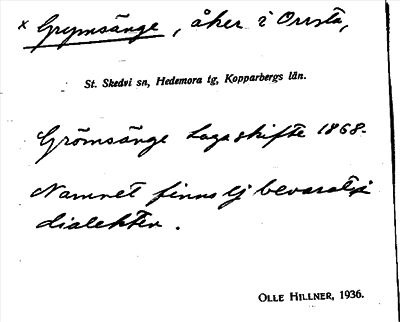 × Grymsänge, åker i Orrsta,
St. Skedvi sn, Hedemora tg, Kopparbergs län.
Grömsänge Lagaskifte 1868.
Namnet finns ej bevarat i
dialekten.
OLLE HILLNER, 1936.